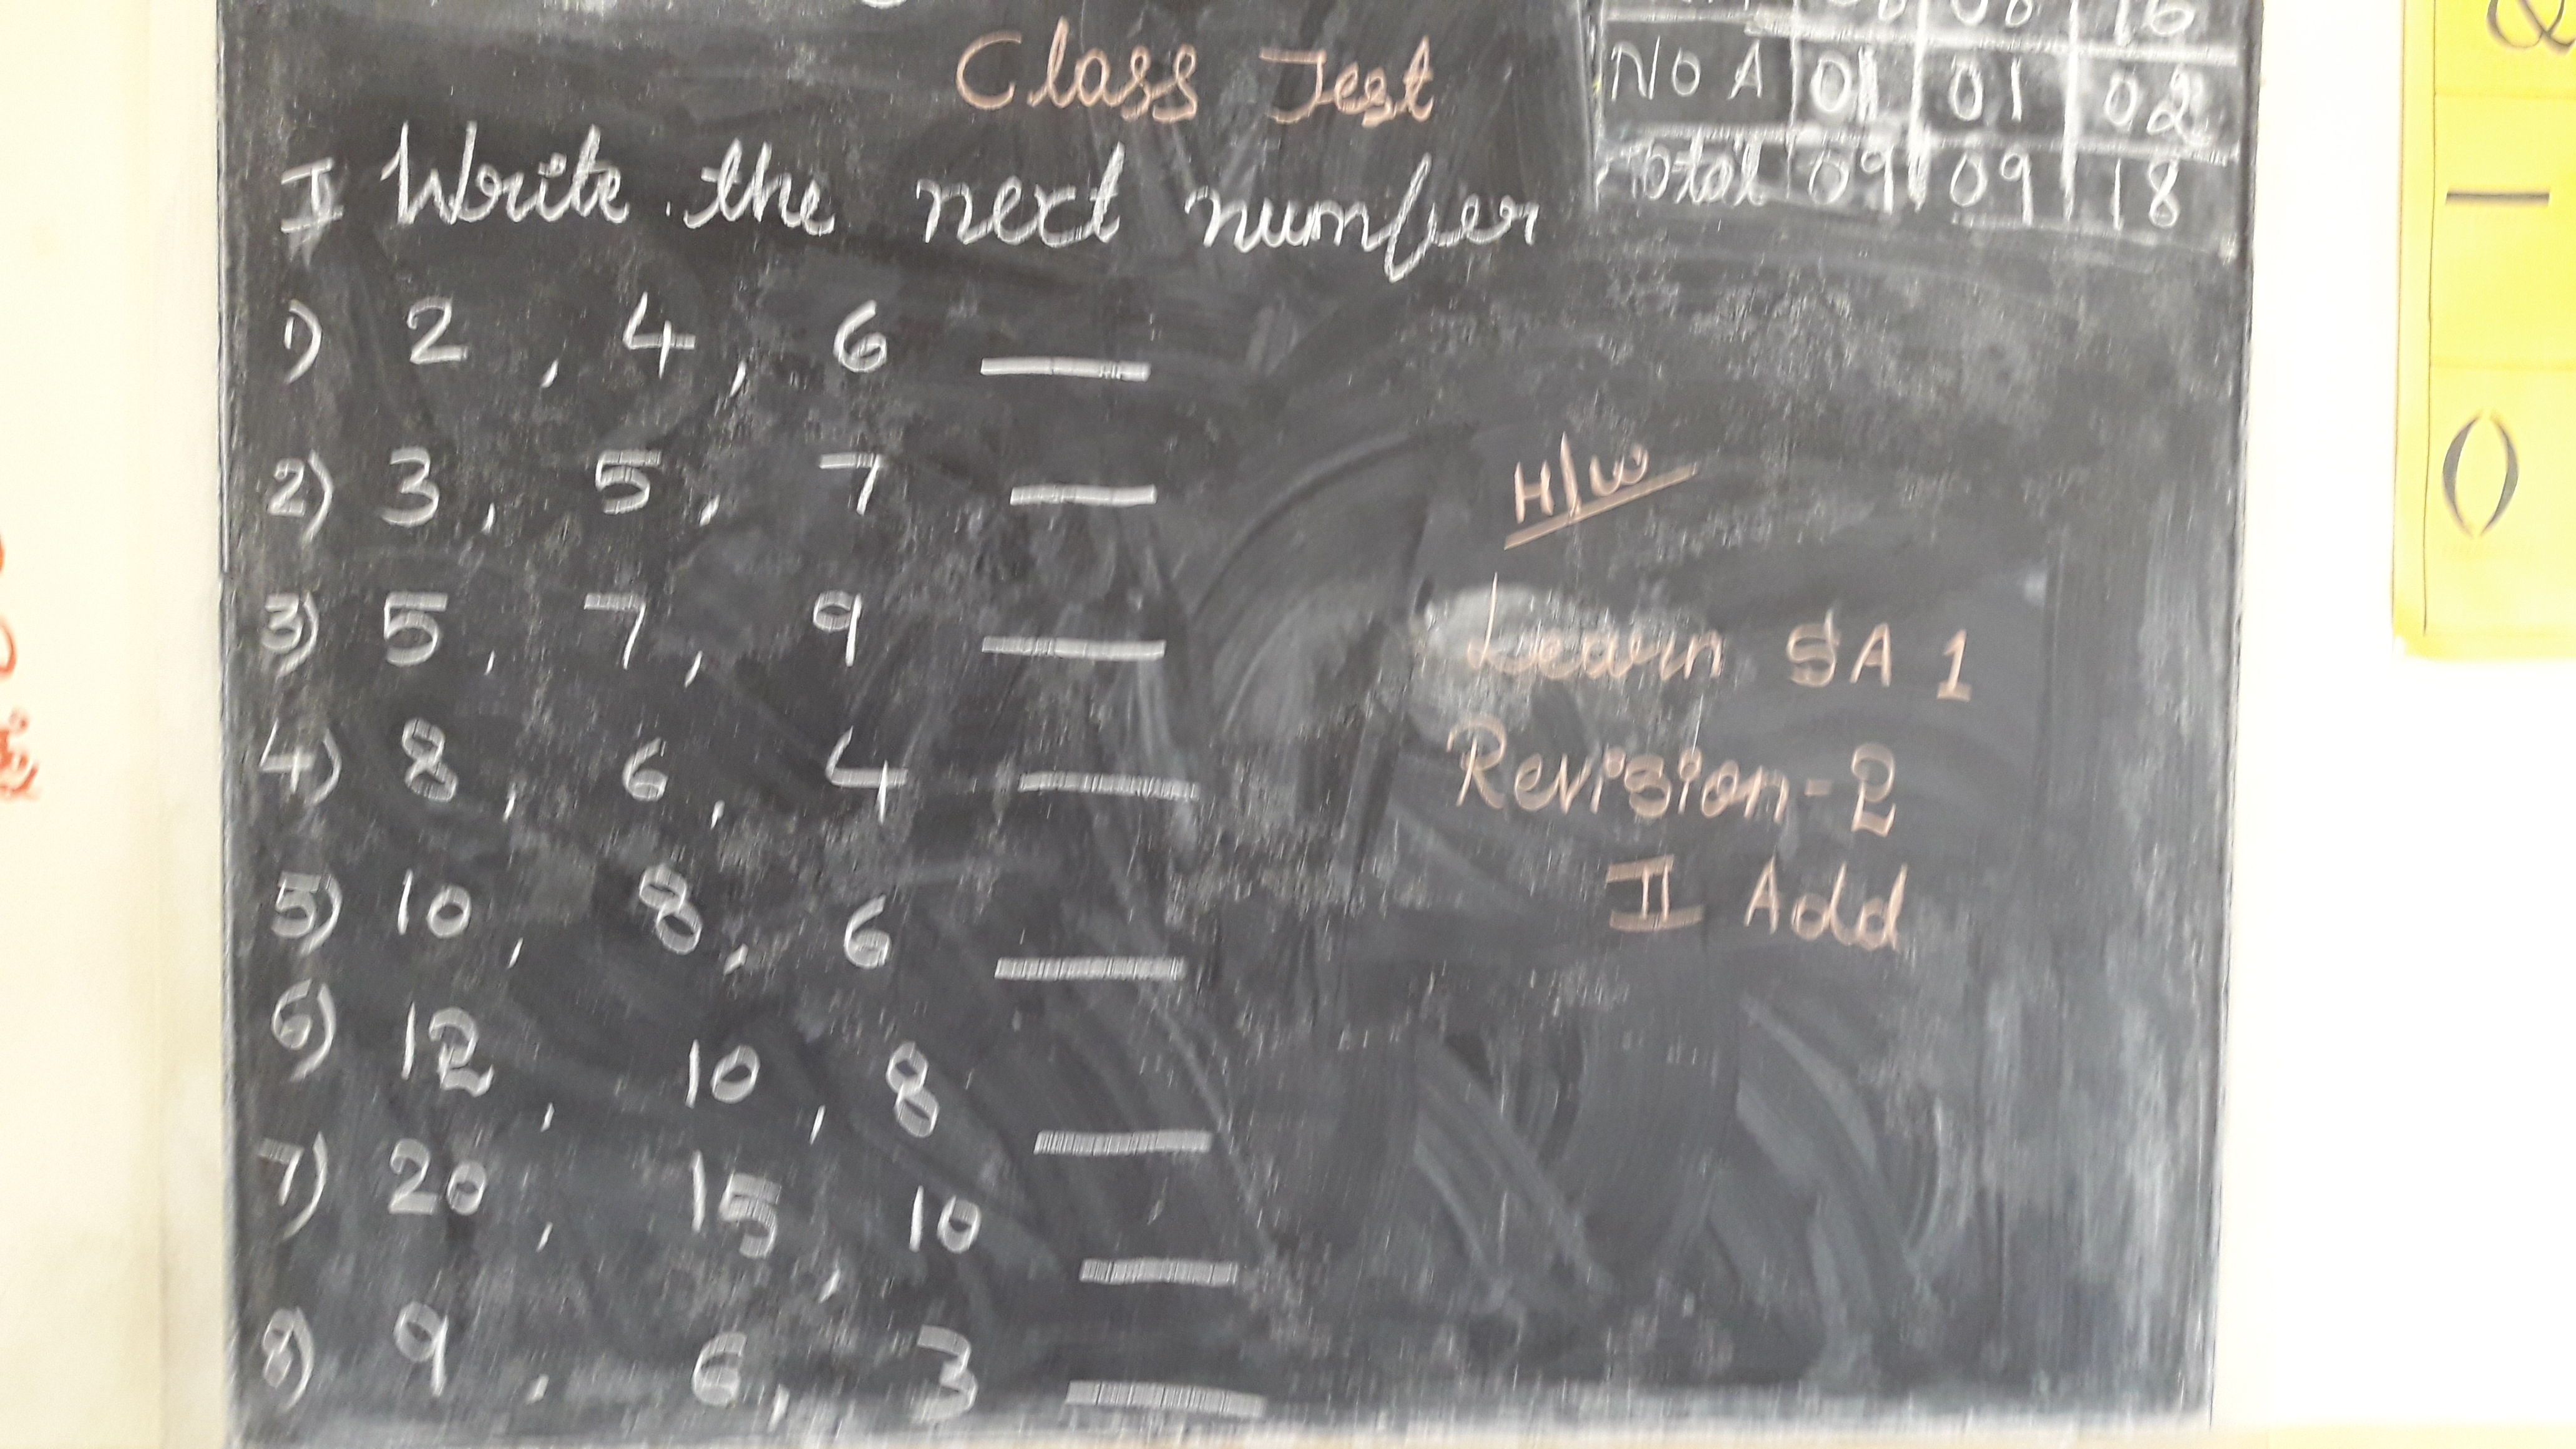 Class Test
No A 01 01 02
Total 09 09 18
I Write the next number
1) 2 , 4 , 6 ___
2) 3 , 5 , 7 ___
3) 5 , 7 , 9 ___
4) 8 , 6 , 4 ___
5) 10 , 8 , 6 ___
6) 12 , 10 , 8 ___
7) 20 , 15 , 10 ___
8) 9 , 6 , 3 ___
H/W
Learn SA 1
Revision-2
II Add
()